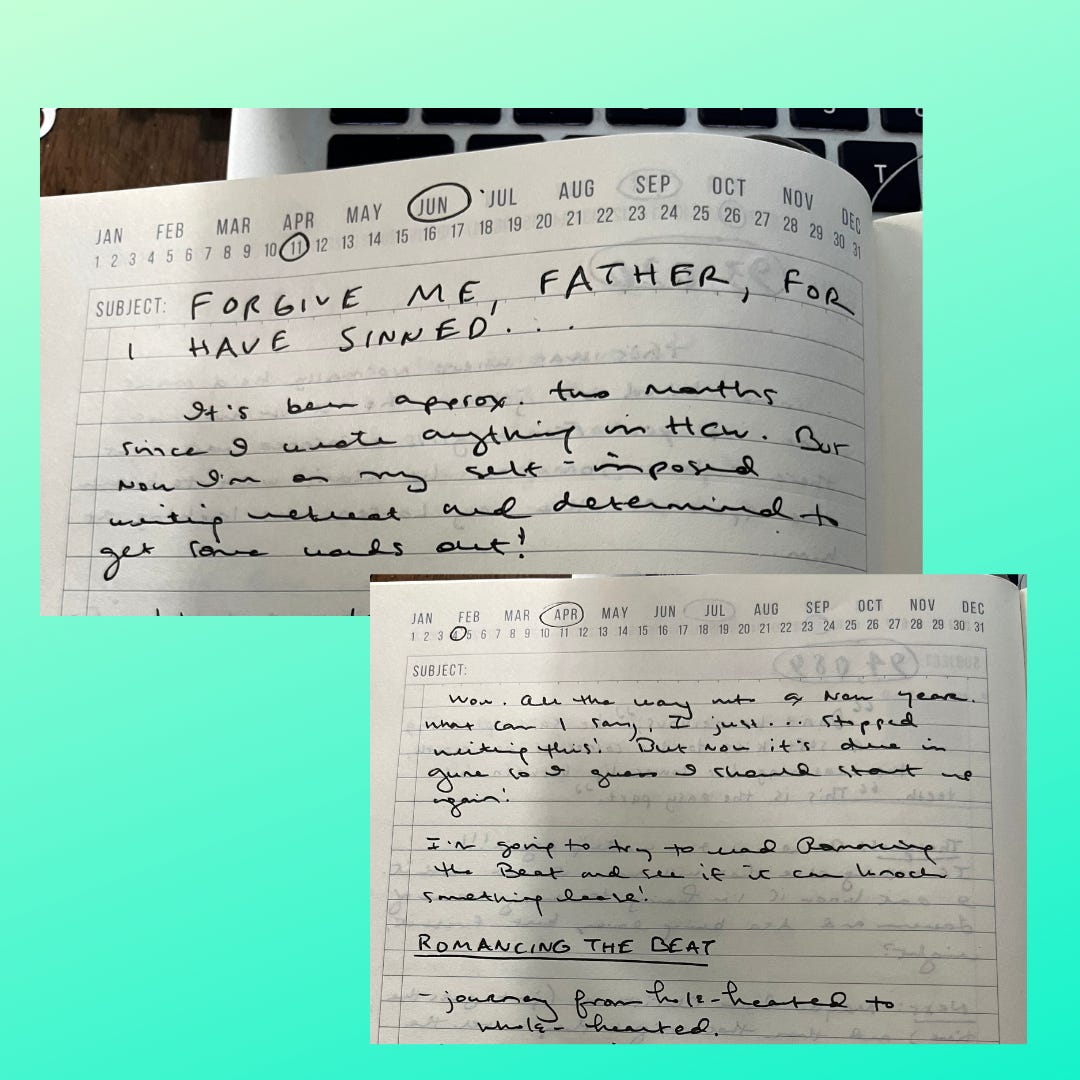 T
JAN FEB MAR APR MAY JUN JUL AUG SEP OCT NOV DEC
1 2 3 4 5 6 7 8 9 10 11 12 13 14 15 16 17 18 19 20 21 22 23 24 25 26 27 28 29 30 31
SUBJECT: FORGIVE ME, FATHER, FOR
I HAVE SINNED...
It's been approx. two months
since I wrote anything in HCW. But
now I'm on my self-imposed
writing retreat and determined to
get some words out!
JAN FEB MAR APR MAY JUN JUL AUG SEP OCT NOV DEC
1 2 3 4 5 6 7 8 9 10 11 12 13 14 15 16 17 18 19 20 21 22 23 24 25 26 27 28 29 30 31
SUBJECT:
Wow. All the way into a new year.
What can I say, I just... stopped
writing this! But now it's due in
June so I guess I should start up
again!
I'm going to try to read Romancing
the Beat and see if it can knock
something loose!
ROMANCING THE BEAT
- journey from hole-hearted to
whole-hearted.